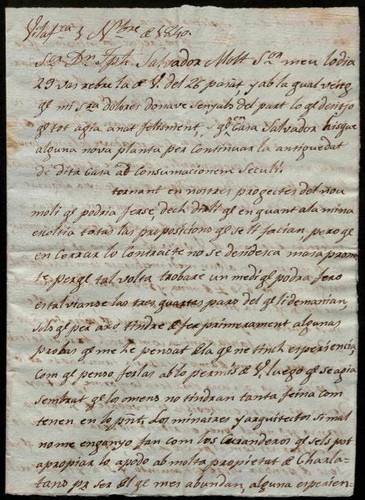 Vilafra y Nbre de 1840.
Sor Dn Jph Salvador Molt Sor meu lo dia
29 vas rebre la de V. del 26 pasat, y ab la qual veitg
qe mi Sra dolores donave senyals del part lo qe desitjo
qe tot agia anat felisment, y qe Casa Salvador
alguna nova planta per Continuar la antiguedat
de dita Casa ad Consumacionem Seculi.
tornant en nostres progectes del nou
moli qe podria ferse, dech dirli qe en quant a la mina
escoltia totas las proposicions qe se li facian, pero qe
en Cerrar lo Contracte no se dendesca massa promp
te, perqe tal volta trobare un medi qe podra fero
estalviantse las tres quartas parts del qe li demanian,
sols qe per axo tindre de fer primerament algunas
probas qe me he pensat de la qe ne tinch esperiencia,
Com qe penso ferlas ab lo permis de V. luego qe se agia
sembrat qe los omens no tindran tanta feina com
tenen en lo pnt, Los minaires y arquitectos si mal
no me enganyo fan com los Curanderos qe sels pot
apropiar lo apodo ab molta propietat de Charla-
tans pr ser del qe mes abundan, alguna esperien-